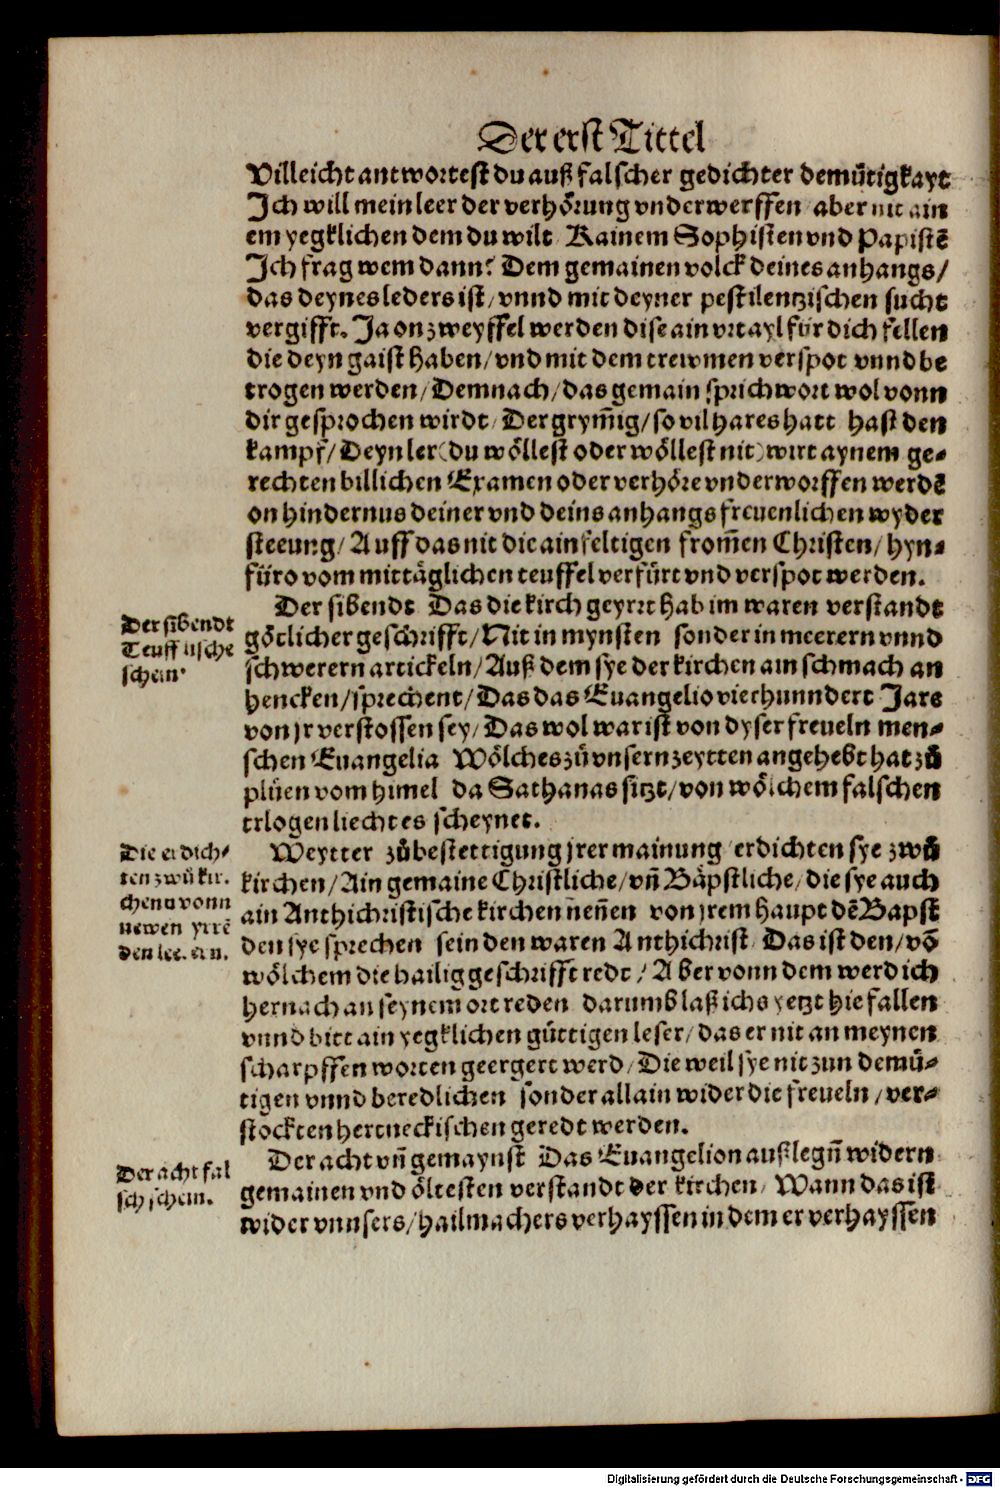 Der erst Tittel
Villeicht antwortest du auß falscher gedichter demůtigkayt
Ich will mein leer der verhörung vnderwerffen aber nit ain
em yegklichen dem du wilt Kainem Sophisten vnd Papistē
Ich frag wem dann? Dem gemainen volck deines anhangs/
das deynes leders ist/ vnnd mit deyner pestilentzischen sucht
vergifft. Ja on zweyffel werden dise ain vrtayl für dich fellen
die deyn gaist haben/ vnd mit dem trewmen verspot vnnd be
trogen werden/ Demnach/ das gemain sprichwort wol vonn
dir gesprochen wirdt/ Der grym̄ig/ so vil hares hatt hast den
kampf/ Deyn ler (du wöllest oder wöllest nit) wirt aynem ge-
rechten billichen Examen oder verhöre vnderworffen werdē
on hindernus deiner vnd deins anhangs freuenlichen wyder
steeung/ Auff das nit die ainfeltigen from̄en Christen/ hyn-
füro vom mittäglichen teuffel verfürt vnd verspot werden.
Der sibendt
Teufflische
schein.
Der sibendt Das die kirch geyrrt hab im waren verstandt
götlicher geschrifft/ Nit in mynsten sonder in meerern vnnd
schwerern artickeln/ Auß dem sye der kirchen ain schmach an
hencken/ sprechent/ Das das Euangelio vierhunndert Jare
von jr verstossen sey/ Das wol war ist von dyser freueln men-
schen Euangelia Wölches zů vnsern zeytten angehebt hat zů
plüen vom himel da Sathanas sitzt/ von wölchem falschen
erlogen liecht es scheynet.
Die erdich-
ten zwů kir-
chen vonn
newen yrrē
den leerern.
Weytter zůbestettigung jrer mainung erdichten sye zwů
kirchen/ Ain gemaine Christliche/ vn̄ Bäpstliche/ die sye auch
ain Anthichristische kirchen nen̄en von jrem haupt dē Bapst
den sye sprechen sein den waren Anthichrist/ Das ist den/ vō
wölchem die hailig geschrifft redt/ Aber vonn dem werd ich
hernach an seynem ort reden darumb laß ichs yetzt hie fallen
vnnd bitt ain yegklichen güttigen leser/ das er nit an meynen
scharpffen worten geergert werd/ Die weil sye nit zun demü-
tigen vnnd beredlichen sonder allain wider die freueln/ ver-
stockten hertneckischen geredt werden.
Der acht fal
sch schein.
Der acht vn̄ gemaynst Das Euangelion außlegn̄ widern
gemainen vnd öltesten verstandt der kirchen/ Wann das ist
wider vnnsers/ hailmachers verhayssen in dem er verhayssen
Digitalisierung gefördert durch die Deutsche Forschungsgemeinschaft - DFG